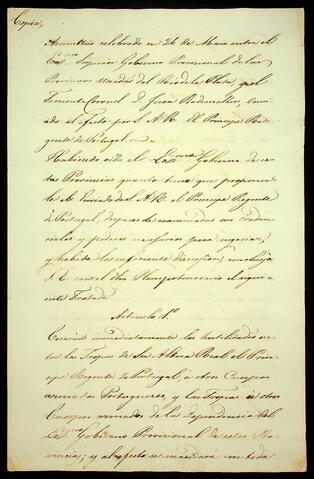 Copia,
Armisticio celebrado en 26 de Maio entre el
Exmo Superior Gobierno Provisional de las
Provincias Unidas del Rio de la Plata, y el
Teniente Coronel D. Juan Rademaker, envi
ado al efecto por S. A. R. El Principe Re
gente de Portugal.
Habiendo oido el Exmo Gobierno de es
tas Provincias quanto tenia que proponer
le el Enviado de S. A. R. el Principe Regente
de Portugal, despues de examinadas sus creden
ciales y poderes necesarios para negociar,
y habida la suficiente discusion, concluyó
S. E. con el dho Plenipotenciario el sigui
ente Tratado
Articulo 1o
Cesarán inmediatamente las hostilidades en
tre las Tropas de Su Alteza Real el Princi
pe Regente de Portugal, ú otros Cuerpos
armados Portugueses, y las Tropas ú otros
Cuerpos armados de la dependencia del
Exmo Gobierno Provisional de estas Pro
vincias; y al efecto se mandará con toda